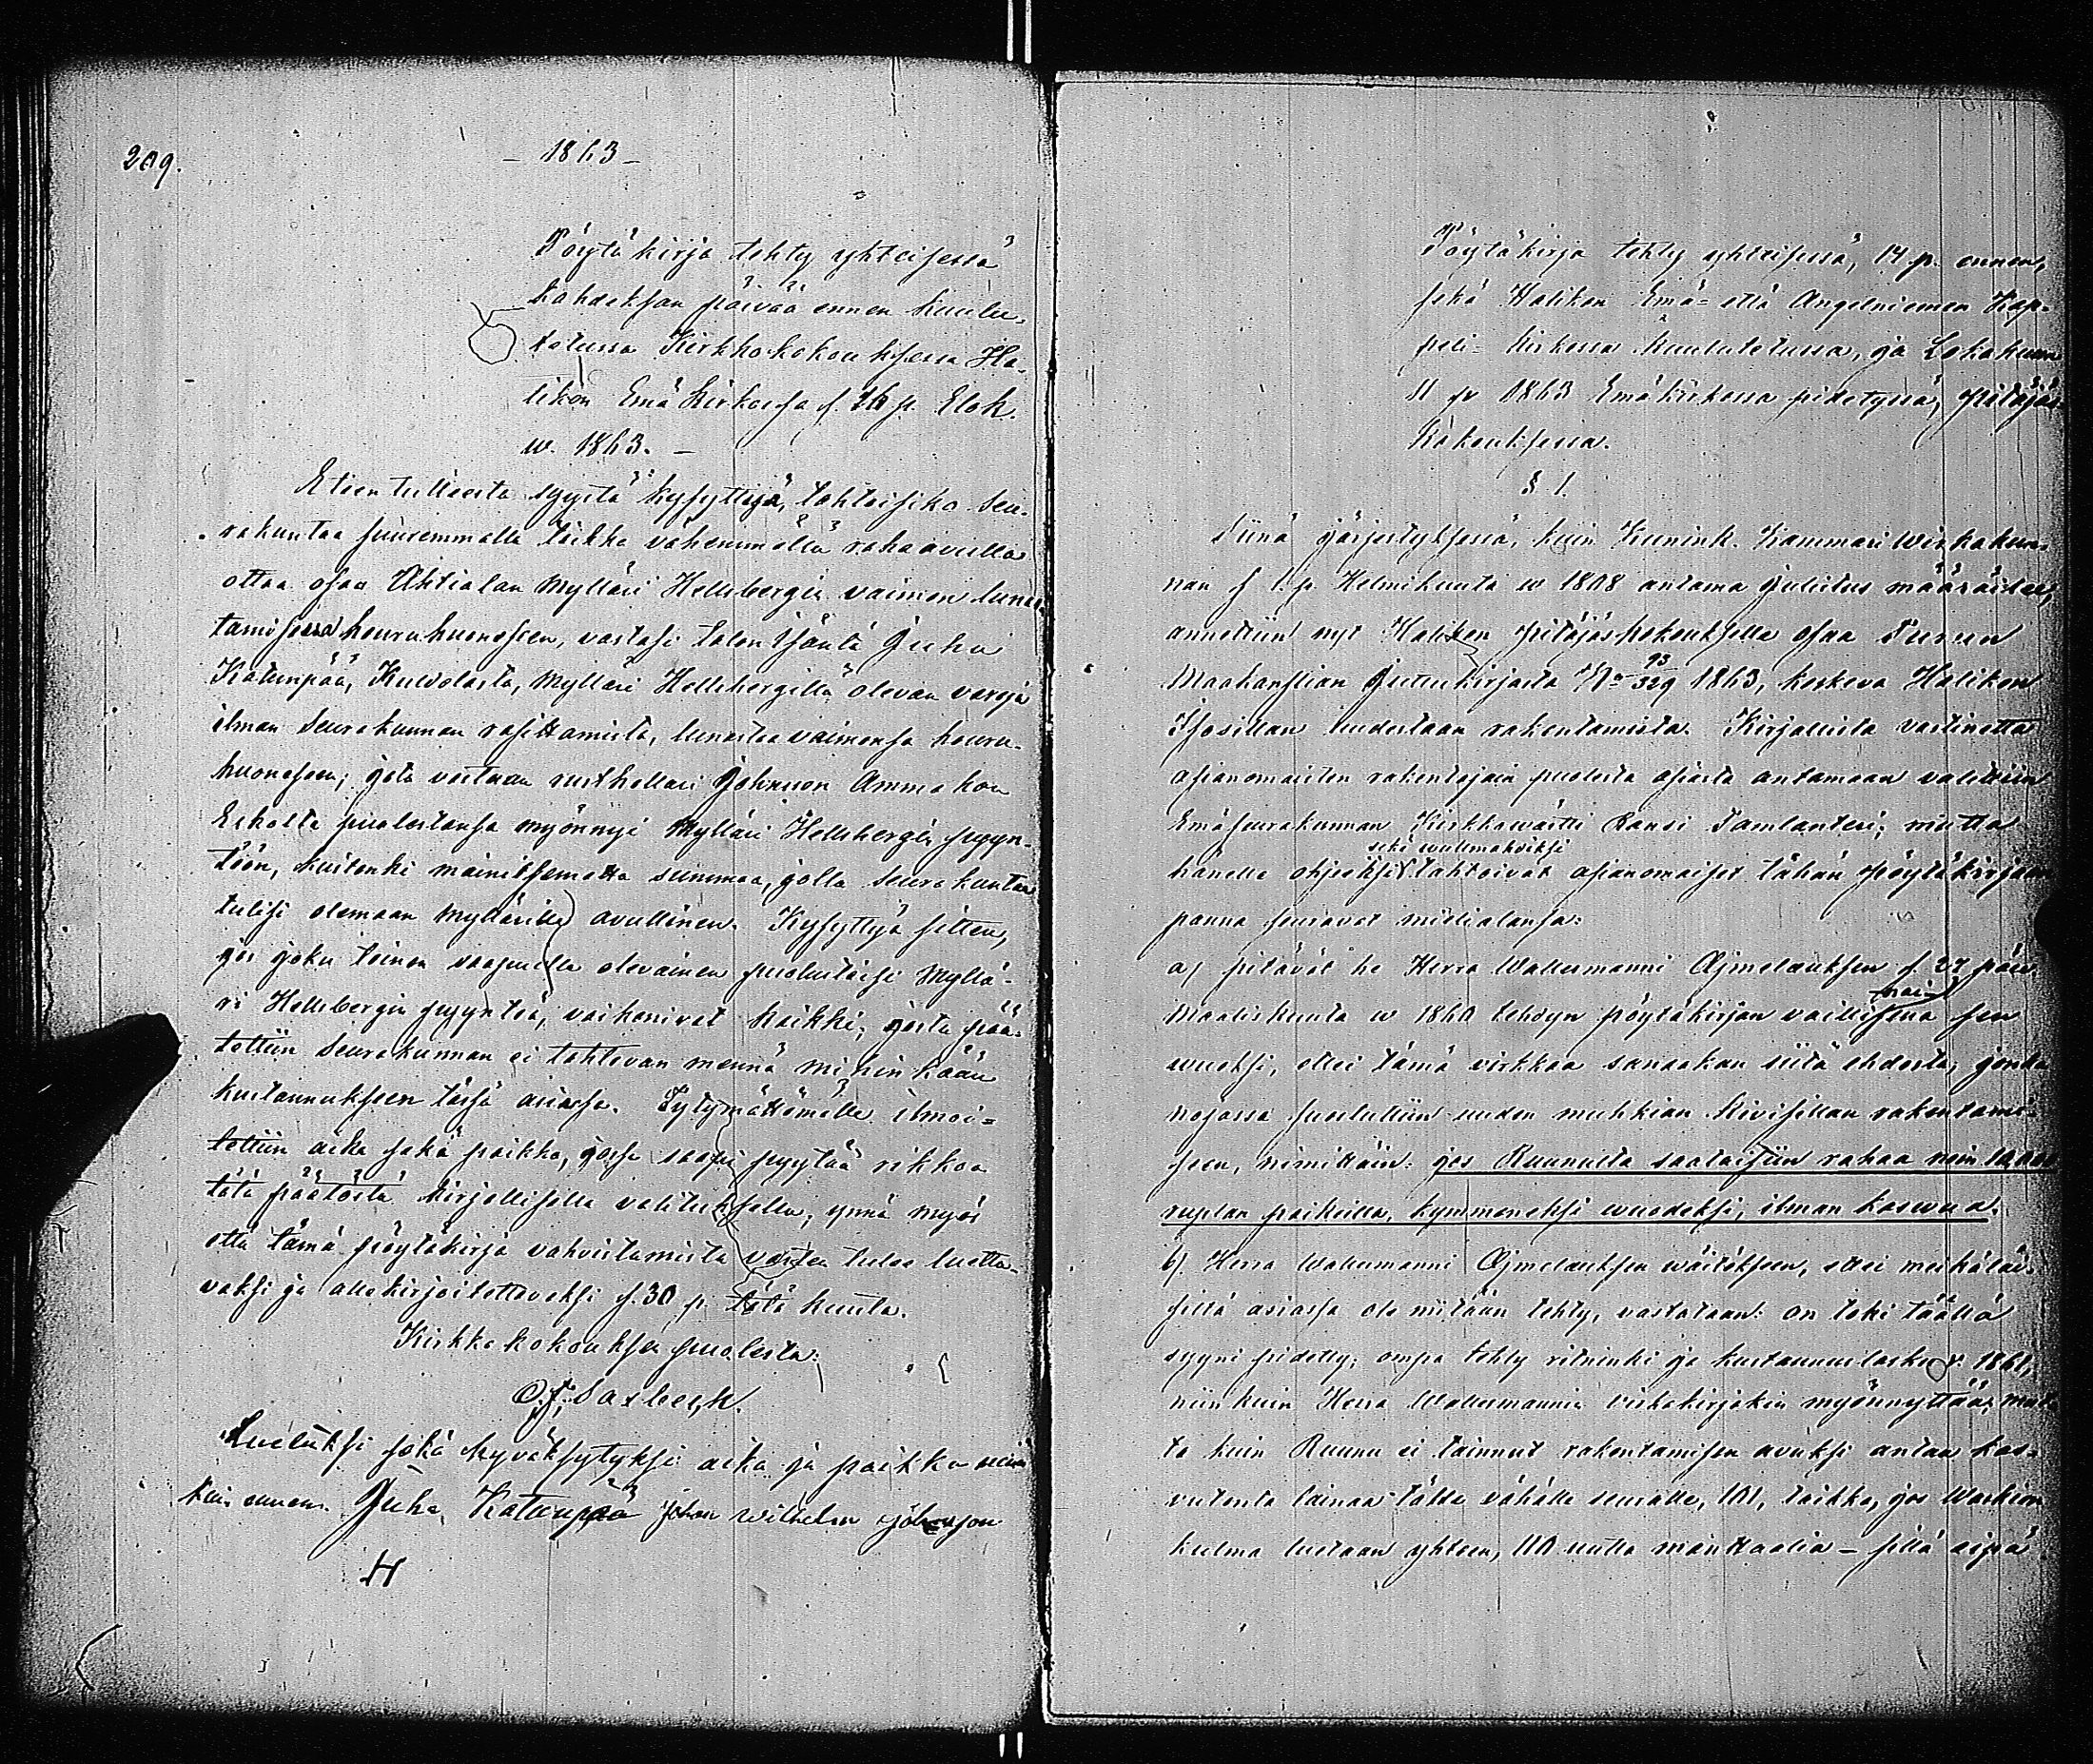 209.
- 1863 -
Pöytäkirja tehty yhteisessä
kahdeksan päivää ennen kuulu-
tetussa Kirkkokokouksessa Ha-
likon Emäkirkossa s. 16 p. Elok.
w. 1863. -
Eteen tulleesta syystä kysyttyä, tahtoisiko Seu-
rakuntaa suuremmalla taikka vähemmällä raha avulla
ottaa osaa Ahtialan Mylläri Hellsbergin vaimon lunas-
tamisessa houruhuoneseen, vastasi talon Isäntä Juha
Katumpää, Kuwolasta, Mylläri Hellsbergillä olevan varoja
ilman Seurakunnan rasittamista, lunastaa vaimonsa houru-
huoneseen; jota vastaan rusthollari Johnsson Ammakon
Eskolta puolestansa myönnyi Mylläri Hellsbergin pyyn-
töön, kuitenki mainitsematta summaa, jolla Seurakuntaa
tulisi olemaan Myllärille avullinen. Kysyttyä sitten,
jos joku toinen saapuvilla olevainen puolustaisi Myllä-
ri Hellsbergin pyyntöä, vaikenivat kaikki, josta pää-
tettiin Seurakunnan ei tahtovan mennä mihinkään
kustannukseen tässä asiassa. Tytymättömälle ilmoi-
tettiin aika sekä paikka, jossa saapi pyytää rikkoa
tätä päätöstä kirjallisella valituksella, ynnä myös
että tämä pöytäkirja vahvistamista varten tulee luetta-
vaksi ja allekirjoitettavaksi s. 30 p. tätä kuuta.
Kirkkokokouksen puolesta:
O. F. Saxbeck.
Luetuksi sekä hyväksytyksi aika ja paikka niin
kuin ennen. Juha Katumpää Johan Wilhelm Johnsson
H
Pöytäkirja tehty yhteisessä, 14 p. ennen,
sekä Halikon Emä- että Angelniemen Kap-
peli- kirkossa kuulutetussa, ja Lokakuun
11 p. 1863 Emäkirkossa pidetyssä, pitäjäs-
kokouksessa.
§ 1.
Siinä järjestyksessä, kuin Kunink. Kammari Wirkakun-
nan s. 1. p. Helmikuuta w 1808 antama julistus määräilee,
annettiin nyt Halikon pitäjäskokoukselle osaa Turun
Maakanslian Jutunkirjasta No 93/329 1863, koskeva Halikon
Isosillan uudestaan rakentamista. Kirjallista vastinetta
asianomaisten rakentajain puolesta asiasta antamaan valittiin
Emäseurakunnan Kirkkowärtti Kansi Tamlanteri; mutta
sekä walimahdiksi
hänelle ohjeeksi tahtoivat asianomaiset tähän pöytäkirjaan
panna seuravat mielialansa:
a) pitävät he Herra Waltesmanni Ajmelaeuksen s. 27 päiv
Maaliskuuta w 1860 tehdyn pöytäkirjan vaillisena sen
wuoksi, ettei tämä virkkaa sanaakan siitä ehdosta, jonka
nojassa suostuttiin uuden muhkian kivisillan rakentami-
seen, nimittäin: jos Ruunusta saataisiin rahaa noin 10,000
ruplan paikoilla, kymmeneksi wuodeksi, ilman kaswua.
b). Herra Waltesmanni Ajmelaeuksen wäitökseen, ettei meikäläi-
siltä asiassa ole mitään tehty, vastataan: on toki täällä
syyni pidetty; ompa tehty ritninki ja kustannuslasku v. 1861,
niin kuin Herra Waltesmannin virkakirjakin myönnyttää, mut-
ta kuin Ruunu ei tainnut rakentamisen avuksi antaa kas-
vutonta lainaa tälle vähälle seuralle, 101, taikka, jos Waskion
kulma luetaan yhteen, 110 uutta manttaalia - sillä eipä